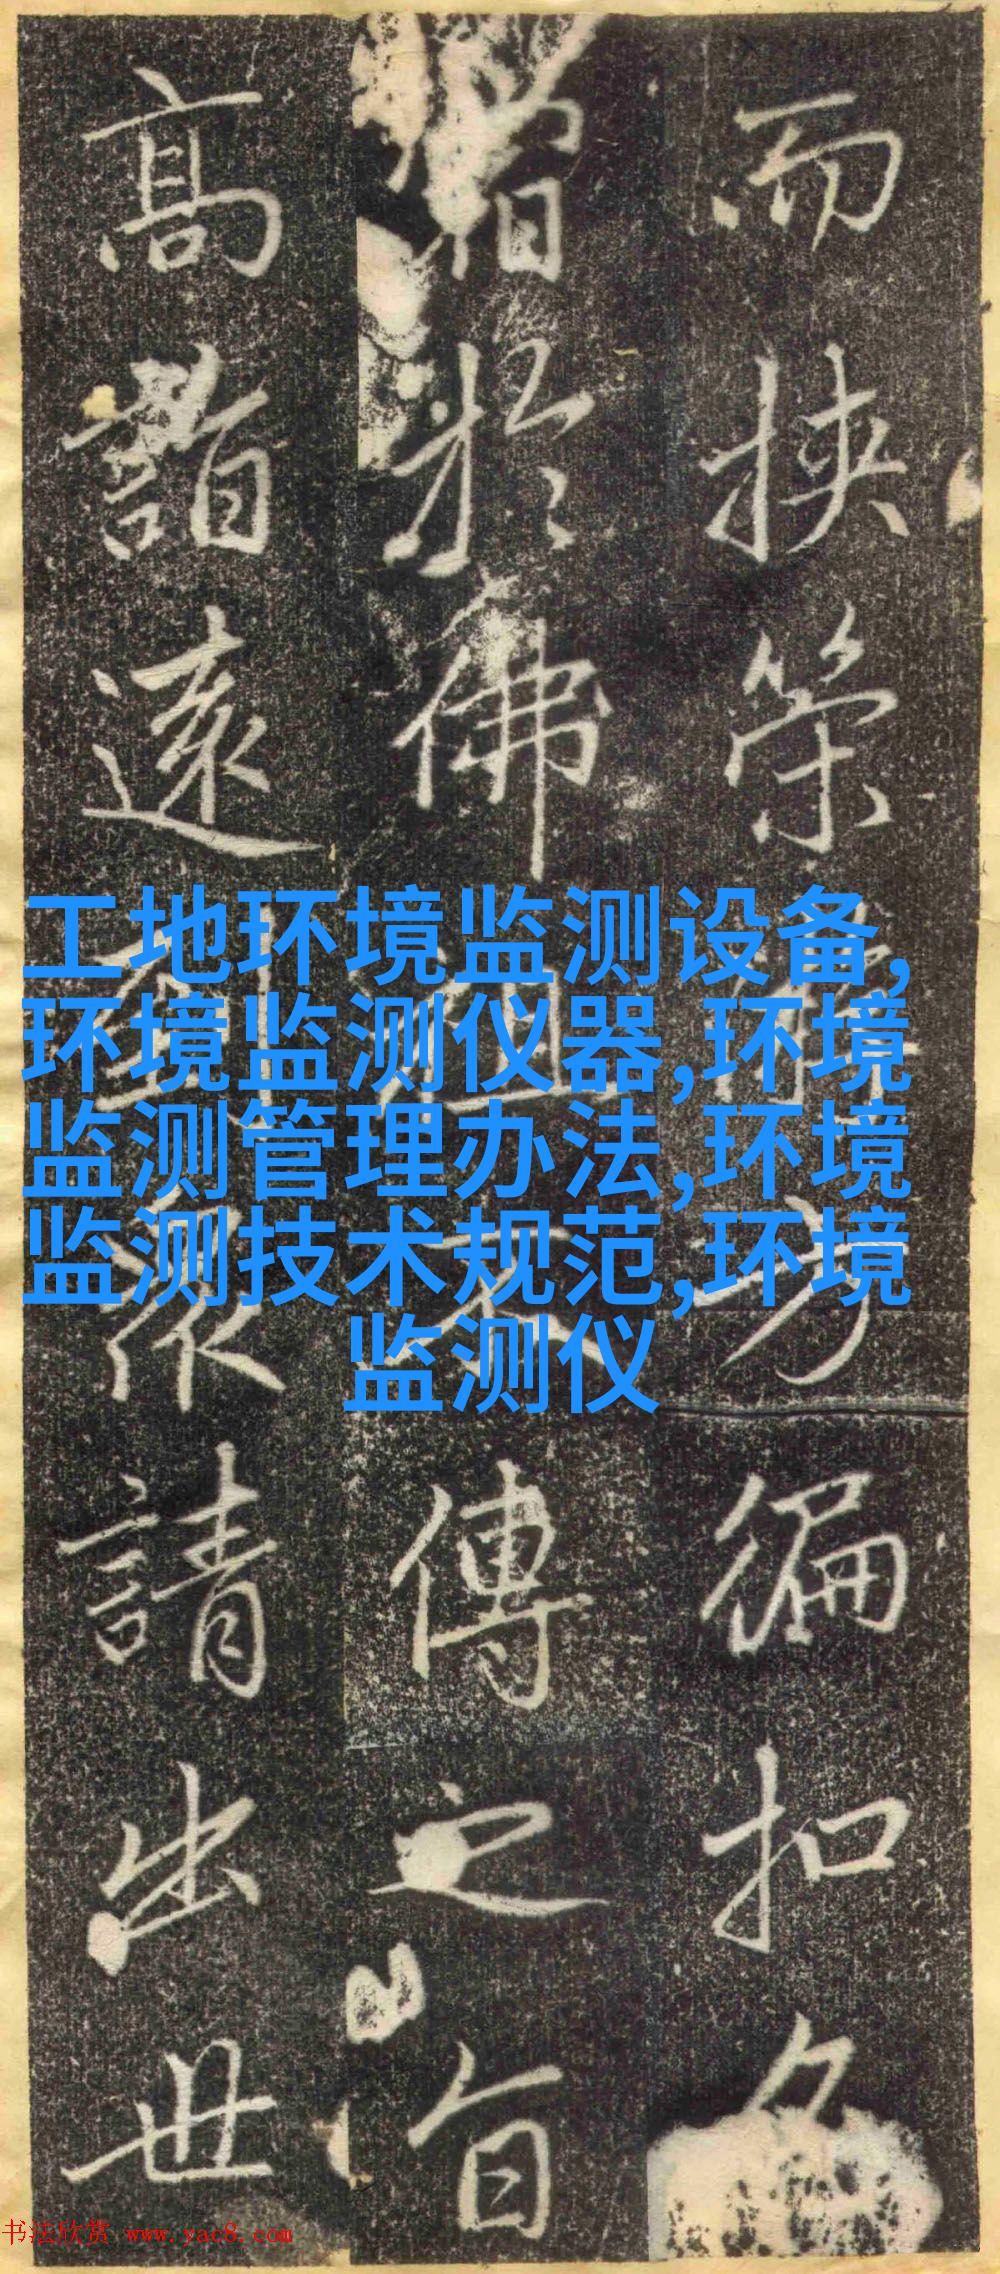 而挾策方徧扣
於佛祖不傳之旨
高詣遠到衆請出世
工地环境监测设备,
环境监测仪器,环境
监测管理办法,环境
监测技术规范,环境
监测仪
书法欣赏 www.yac8.com